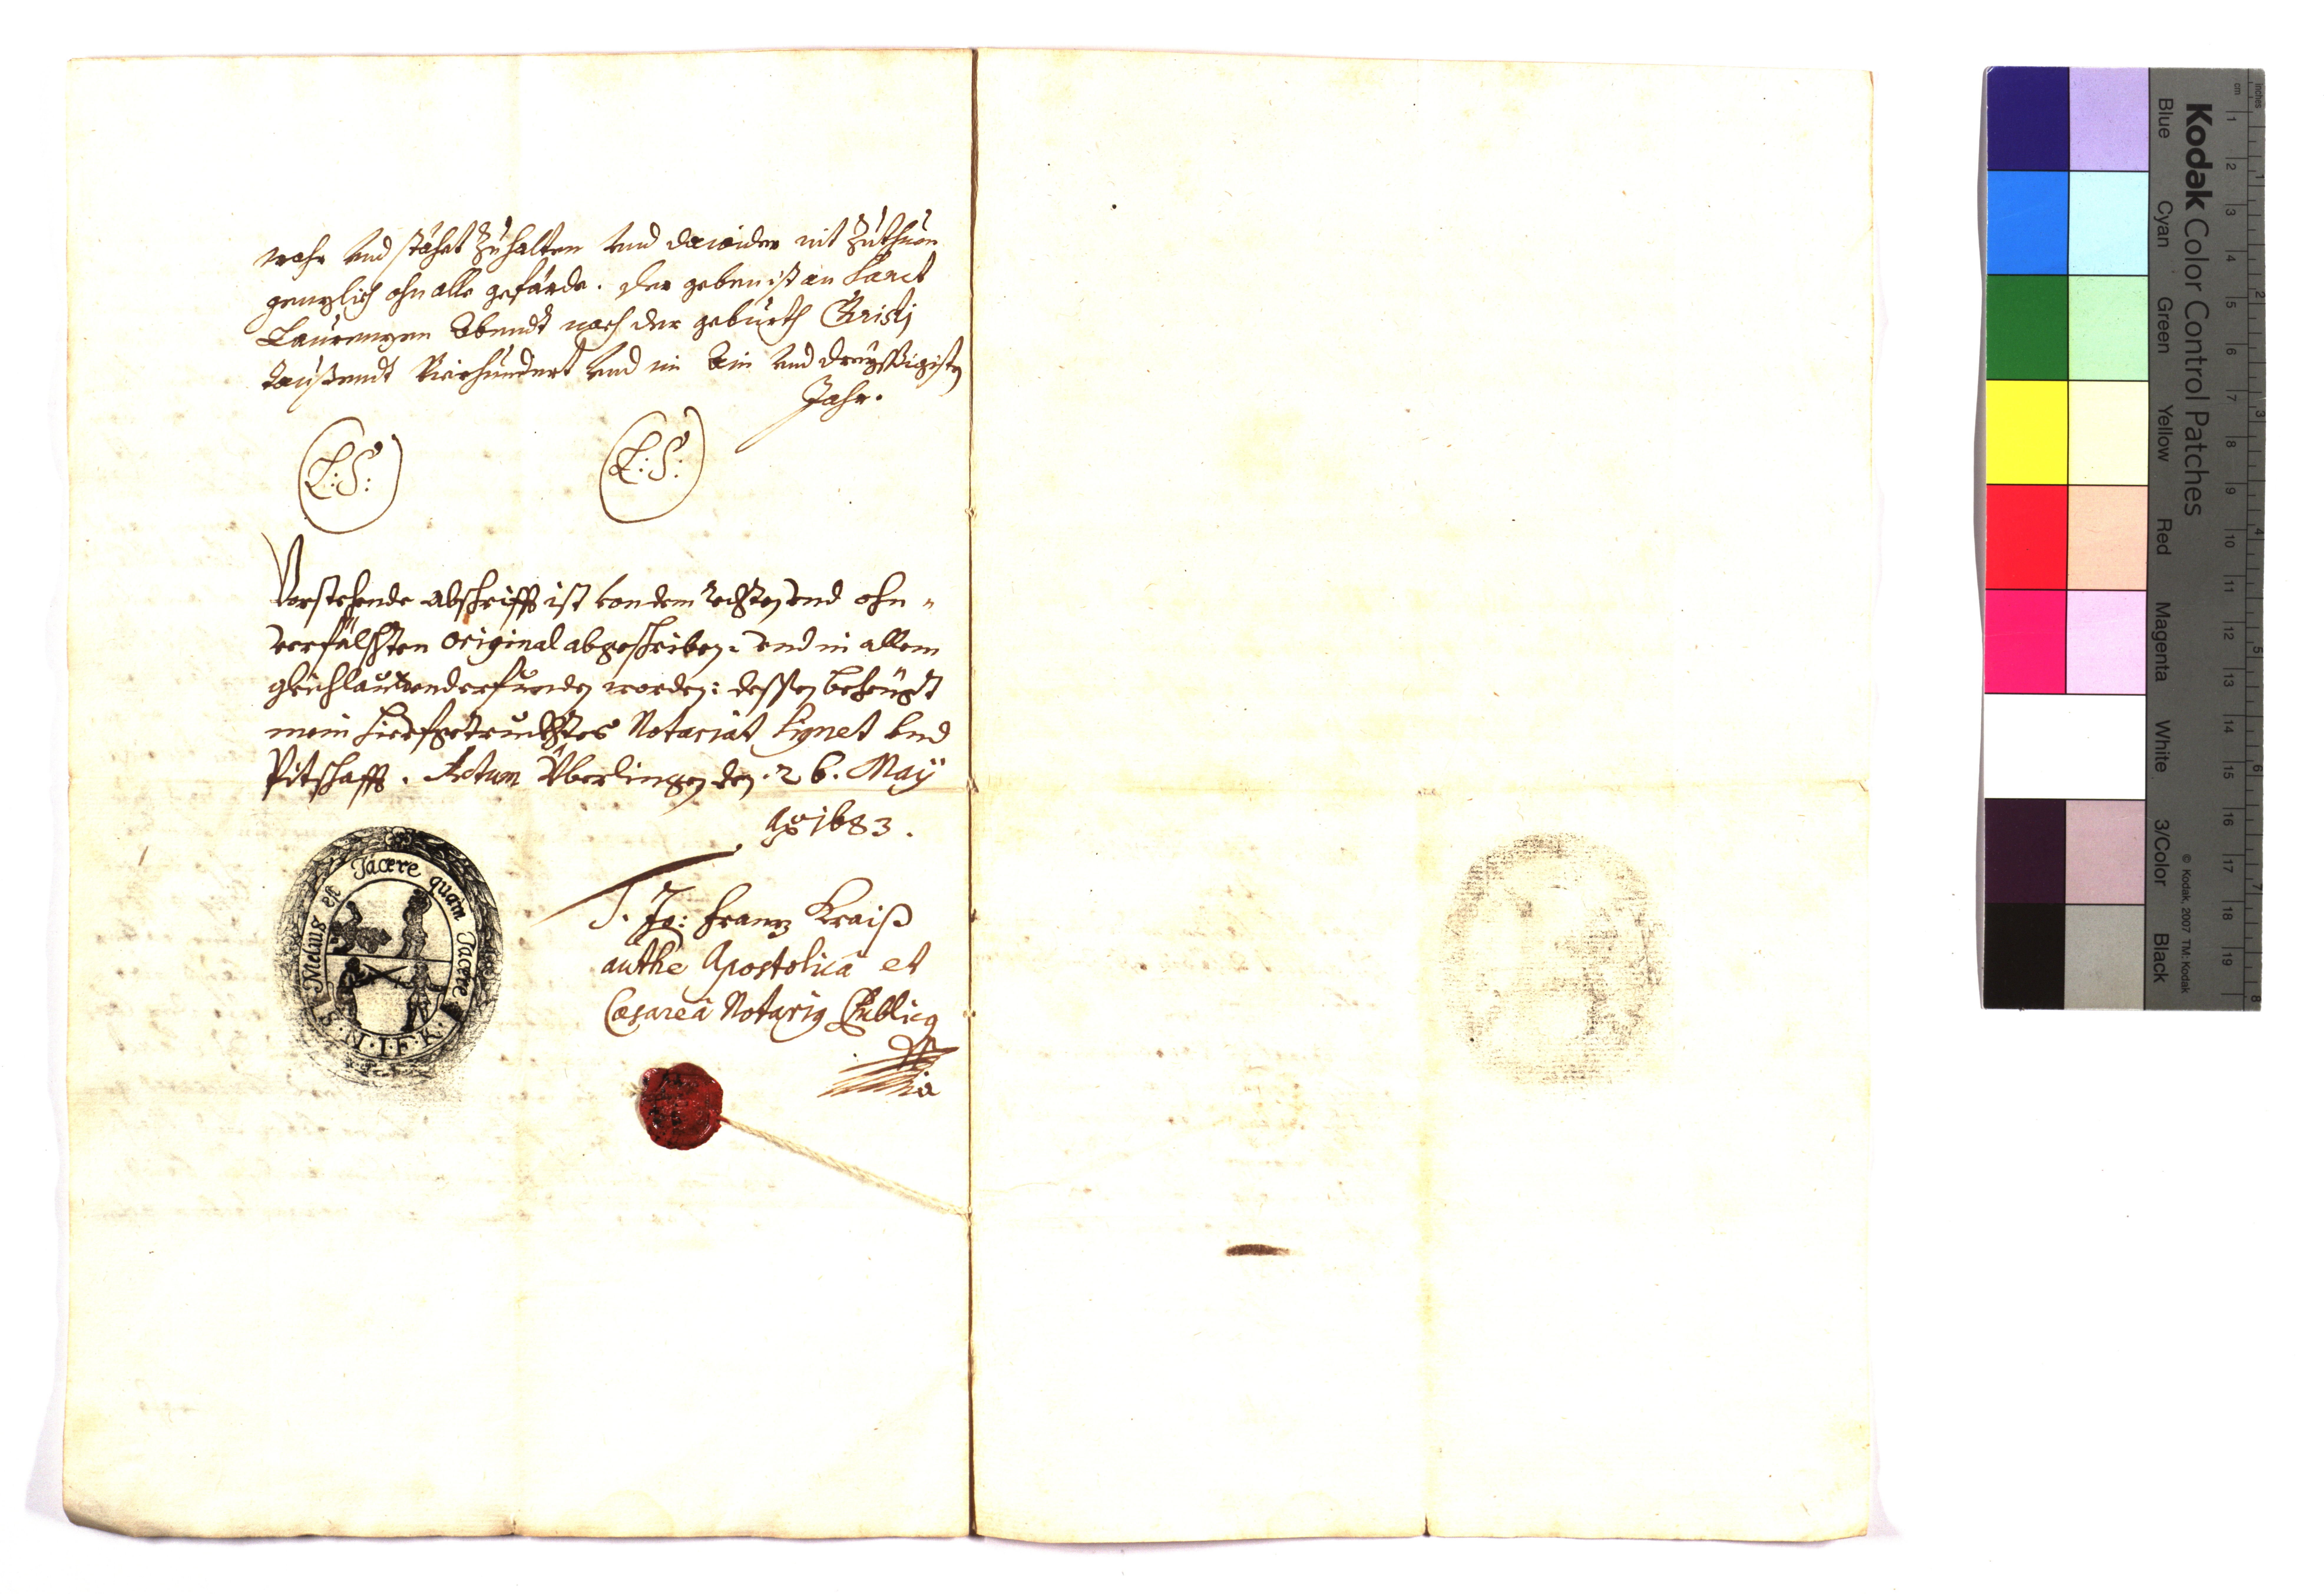 wahr und stähet zuhalten und dawider nit zuthuen
genzlich ohn alle gefärde. der geben ist an Sanct
Laurenzen Abendt nach der geburth Christj
taußendt Vierhundert und im Ain und dreyssigisten
Jahr.
(L:S:) (L:S:)
Vorstehende abschrifft ist von dem rechten und ohn-
verfälschten original abgeschriben: und in allem
gleichlautend erfunden worden: dessen bezeügt
mein hierfürgetruckhtes Notariat Signet und
Pitschafft. Actum Überlingen den. 26. May
Ao 1683.
Melius est Tacere quam Jacere
S. N. I. F. K.
Jo: Franz Kraiß
authe Apostolicâ et
Cæsareâ Notariq Publicq
Kodak Color Control Patches
Blue Cyan Green Yellow Red Magenta White 3/Color Black
© Kodak, 2007 TM: Kodak
inches 1 2 3 4 5 6 7 8
cm 1 2 3 4 5 6 7 8 9 10 11 12 13 14 15 16 17 18 19